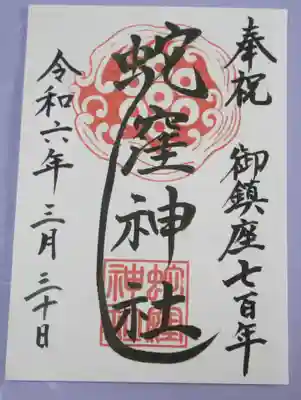 奉祝 御鎮座七百年
蛇窪神社
蛇窪神社
令和六年 三月 三十日